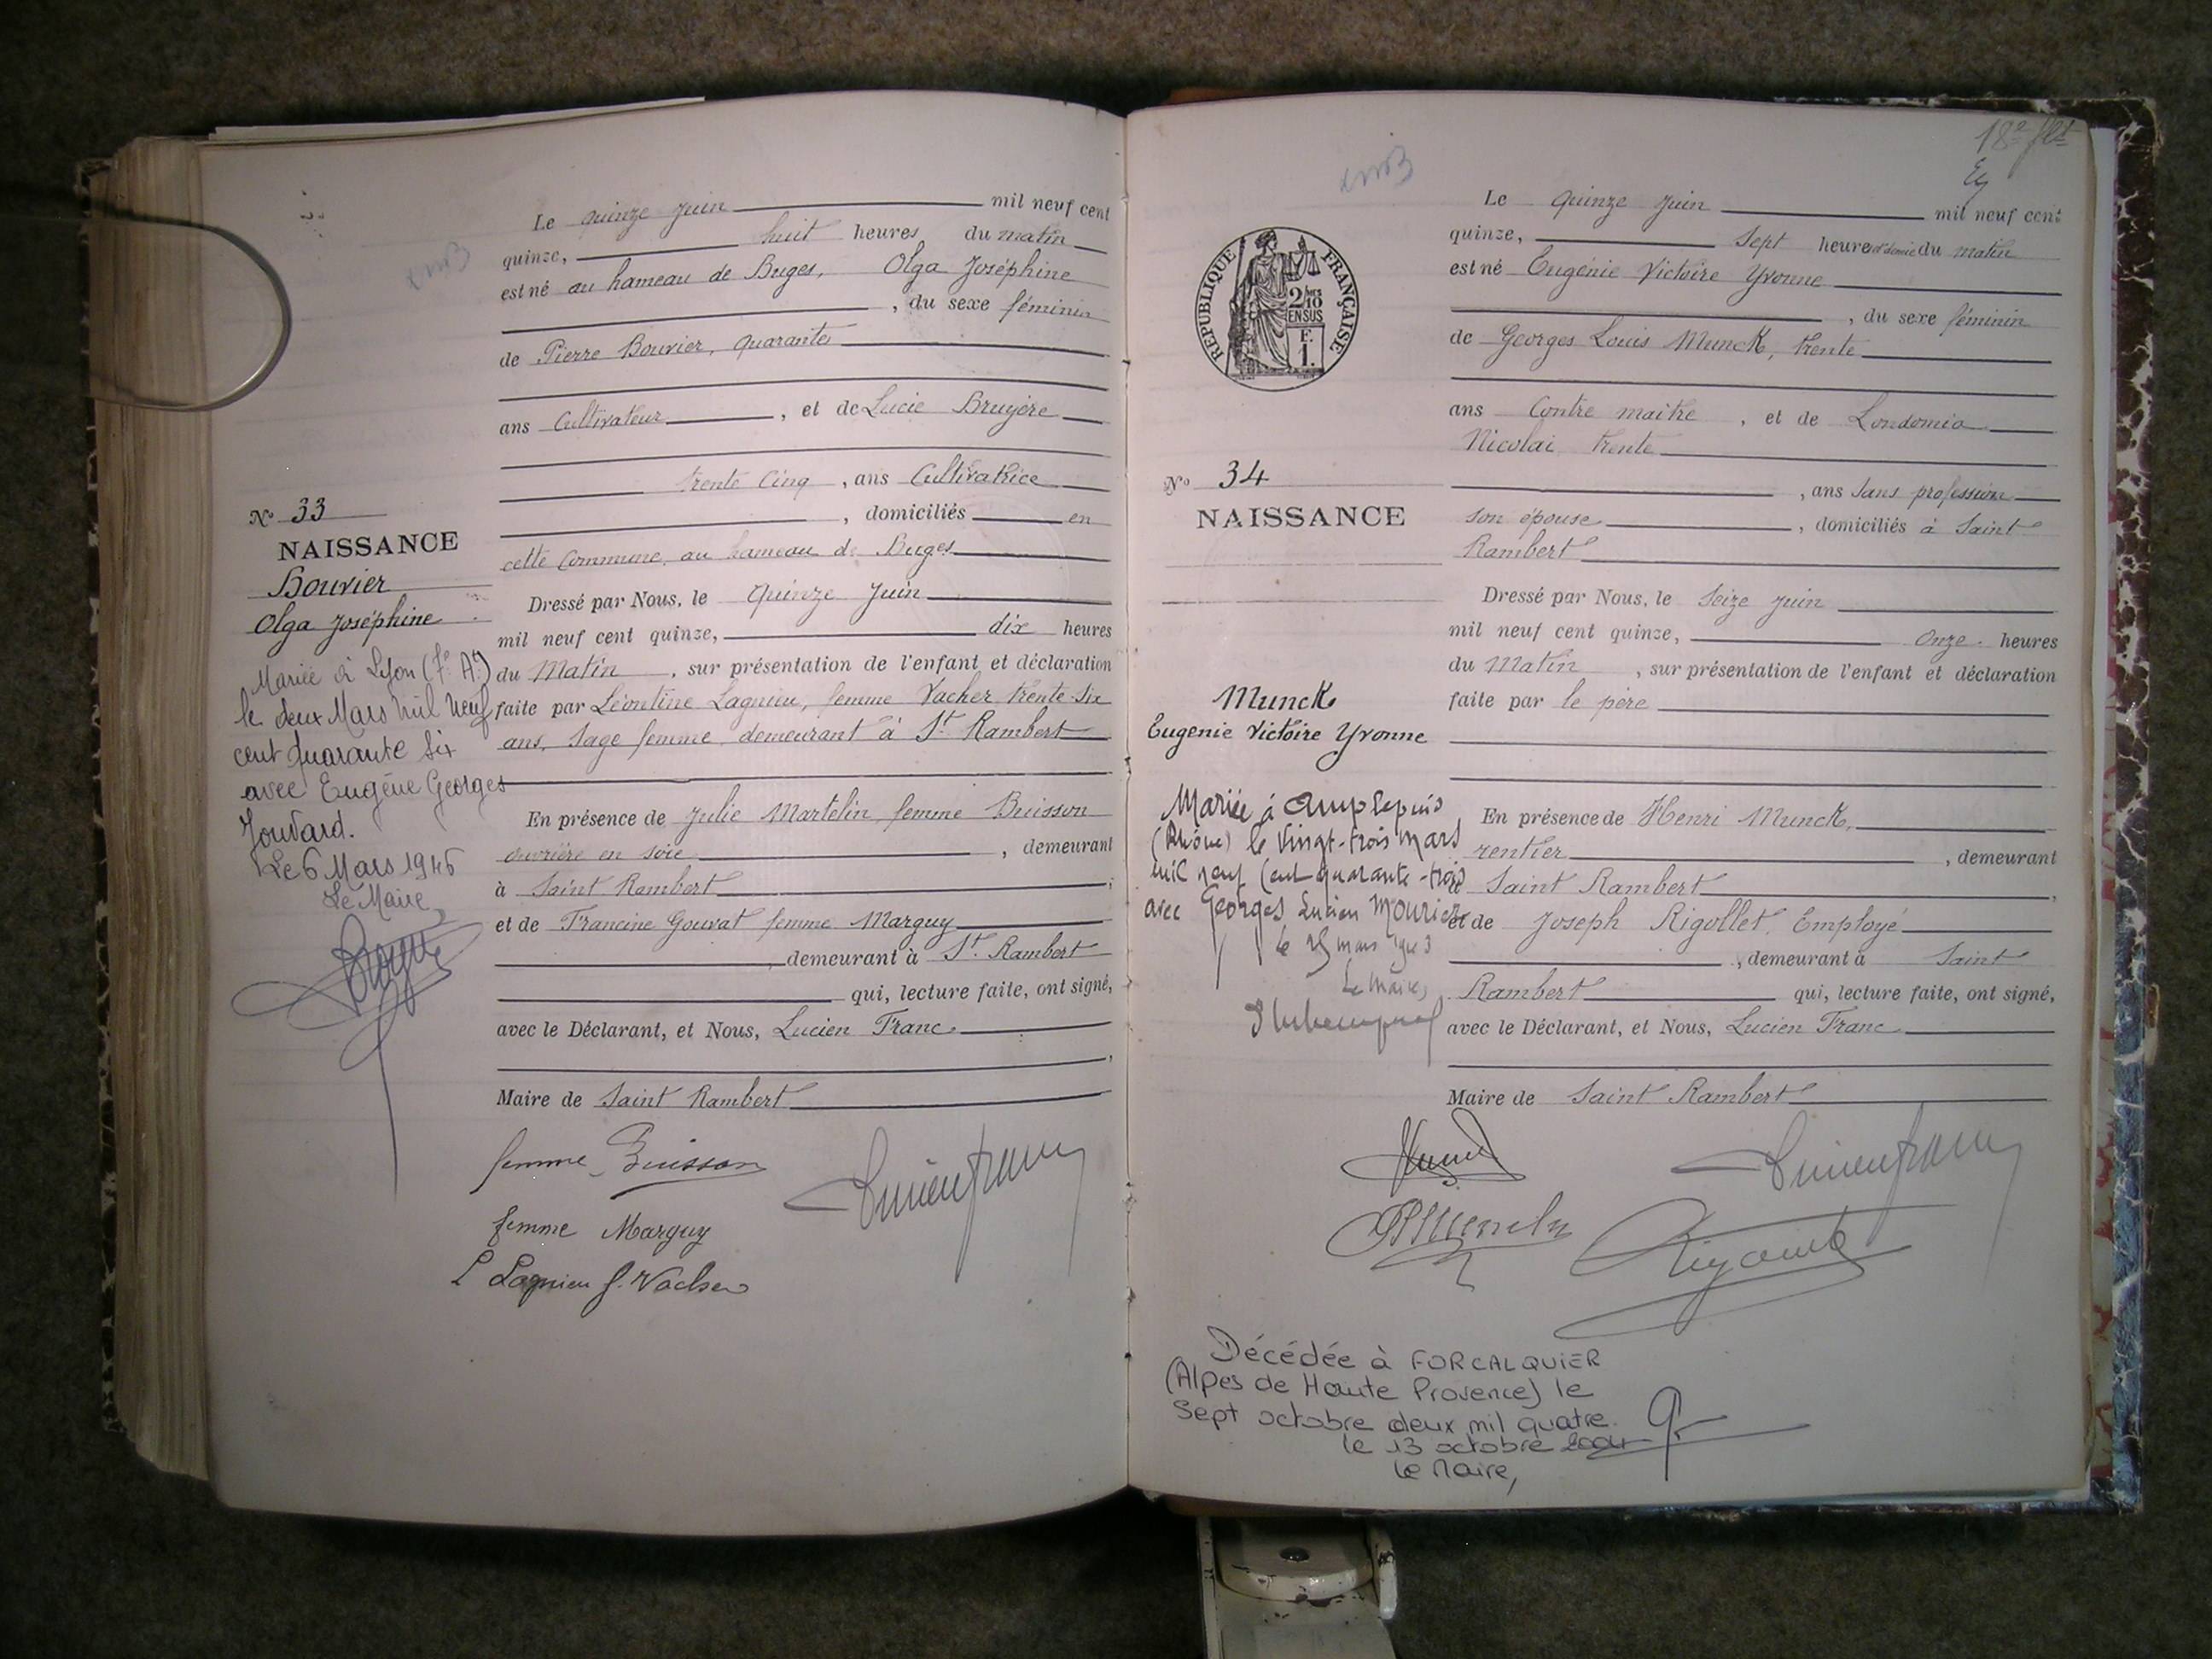 Le quinze Juin mil neuf cent
quinze, huit heures du matin
est né au hameau de Buges, Olga Joséphine
, du sexe féminin
de Pierre Bouvier, quarante
ans Cultivateur, et de Lucie Bruyère
trente cinq, ans Cultivatrice
, domiciliés en
cette Commune, au hameau de Buges
Dressé par Nous, le quinze Juin
mil neuf cent quinze, dix heures
du Matin, sur présentation de l'enfant et déclaration
faite par Léontine Lagnieu, femme Vacher, trente-six
ans, Sage femme, demeurant à St. Rambert
En présence de Julie Martelin, femme Buisson
ouvrière en soie, demeurant
à Saint Rambert,
et de Francine Gouvat femme Marguy
, demeurant à St. Rambert
qui, lecture faite, ont signé,
avec le Déclarant, et Nous, Lucien Franc.
,
Maire de Saint Rambert
femme Buisson
femme Marguy
L Lagnieu f. Vacher
Lucien Franc
No 33
NAISSANCE
Bouvier
Olga Joséphine
Mariée à Lyon
le deux Mars Mil Neuf
cent quarante Six
avec Eugène Georges
Jouvard.
Le 6 Mars 1946
Le Maire
18e flt
Le quinze Juin mil neuf cent
quinze, Sept heures et demie du matin
est né Eugénie Victoire Yvonne
, du sexe féminin
de Georges Louis Munck, trente
ans Contre maître, et de Londomia
Nicolai trente
, ans Sans profession
son épouse, domiciliés à Saint
Rambert
Dressé par Nous, le Seize Juin
mil neuf cent quinze, Onze heures
du Matin, sur présentation de l'enfant et déclaration
faite par le père
En présence de Henri Munck,
rentier, demeurant
à Saint Rambert,
et de Joseph Rigollet, Employé
, demeurant à Saint
Rambert qui, lecture faite, ont signé,
avec le Déclarant, et Nous, Lucien Franc
Maire de Saint Rambert
Lucien Franc
RÉPUBLIQUE FRANÇAISE
2/10
EN SUS
F.
1.
No 34
NAISSANCE
Munck
Eugenie Victoire Yvonne
Mariée à Amplepuis
(Rhône) le Vingt-trois mars
mil neuf cent quarante-trois
avec Georges Lucien Mourier
Le Maire,
Décédée à FORCALQUIER
(Alpes de Haute Provence) le
Sept octobre deux mil quatre.
le 13 octobre 2004
Le Maire,